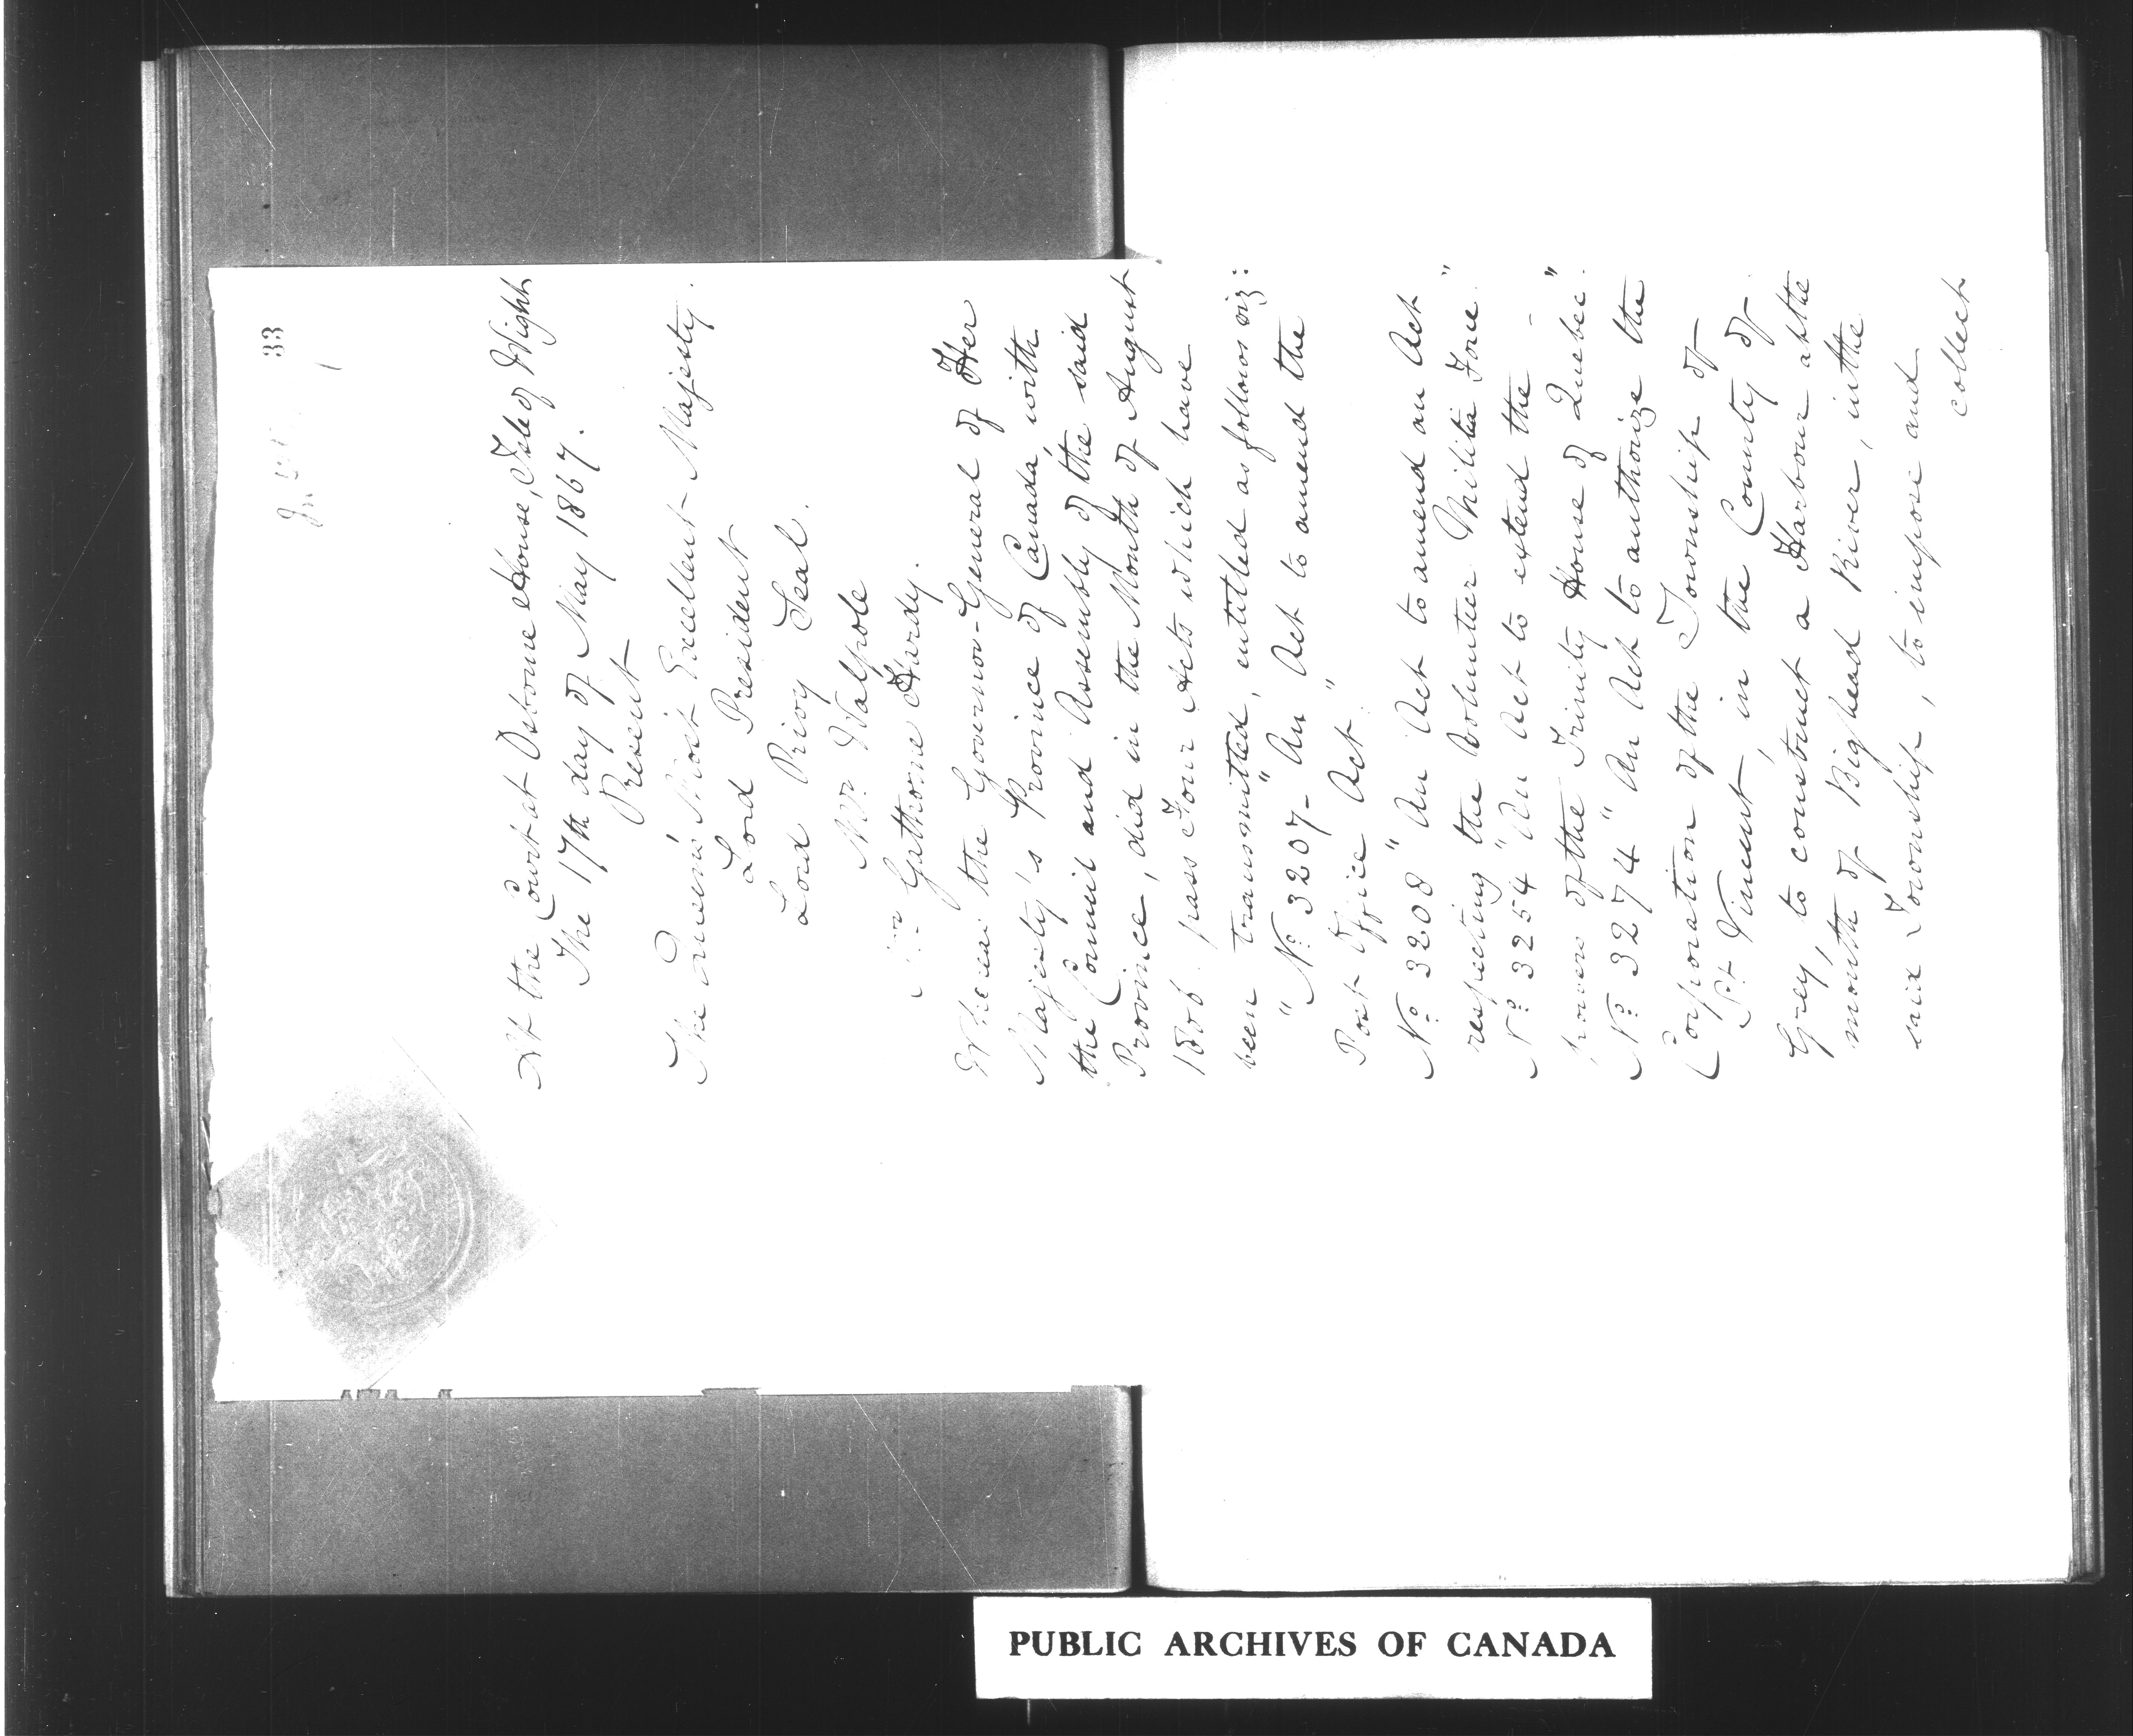 33
At the Court at Osborne House, Isle of Wight
The 17th day of May 1867.
Present
The Queen's Most Excellent Majesty.
Lord President
Lord Privy Seal.
Mr. Walpole
Gathorne Hardy.
Whereas the Governor-General of Her
Majesty's Province of Canada, with
the Council and Assembly of the said
Province, did in the Month of August
1866 pass Four Acts which have
been transmitted, entitled as follows viz:
"No. 3207 - "An Act to amend the
Post Office Act."
No. 3208 "An Act to amend an Act
respecting the Volunteer Militia Force."
No. 3254 "An Act to extend the -
powers of the Trinity House of Quebec."
No. 3274 "An Act to authorize the
Corporation of the Township of
St. Vincent, in the County of
Grey, to construct a Harbour at the
mouth of Bighead River, in the
said Township, to impose and
collect
PUBLIC ARCHIVES OF CANADA